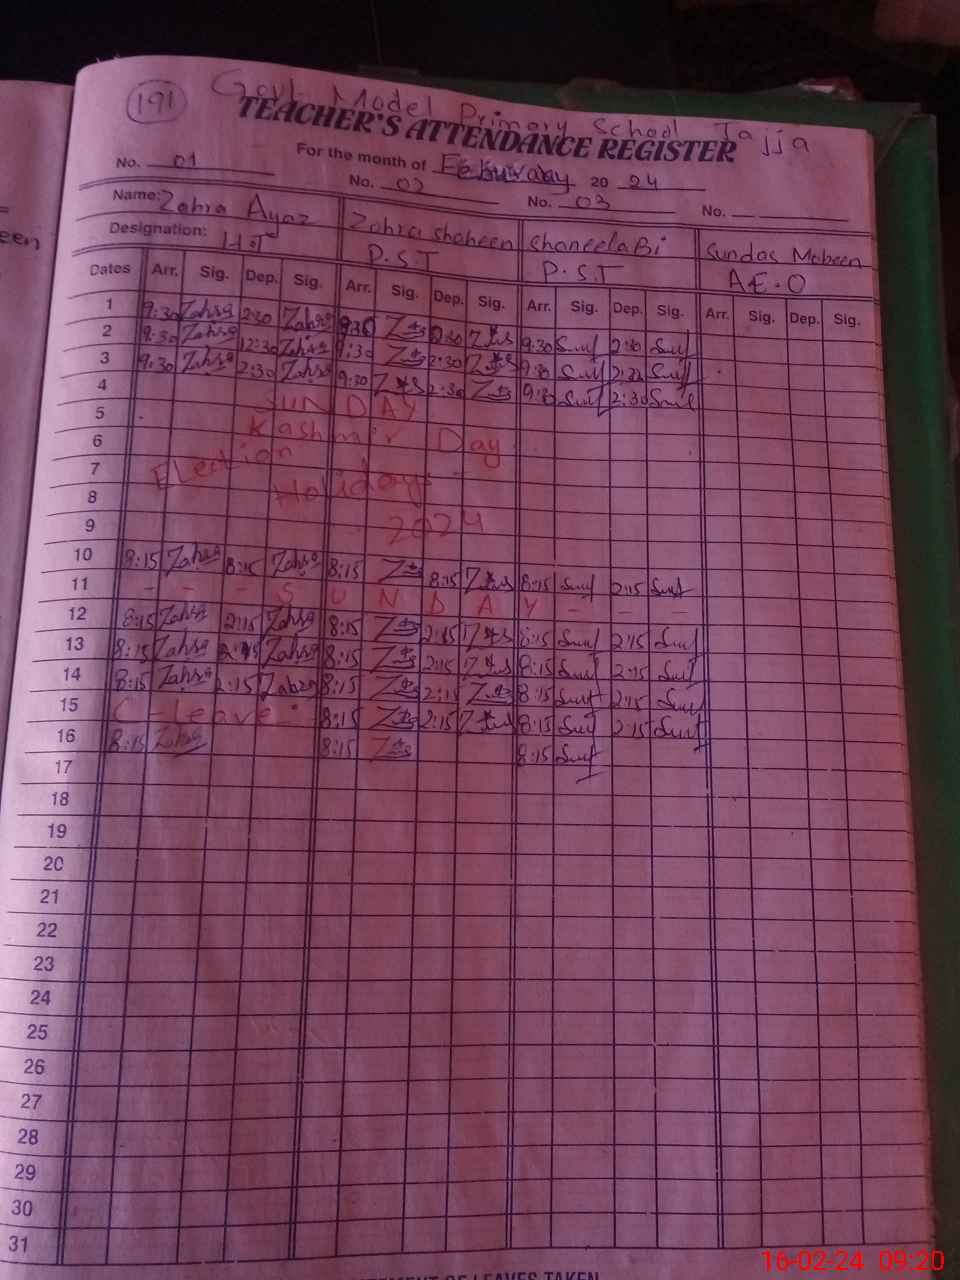 191
Govt. Model Primary School Jajja
TEACHER'S ATTENDANCE REGISTER
For the month of Febuwaay 20 24
No. 01 No. 02 No. 03 No.
Name: Zahra Ayaz Zahra Shaheen Shaneela Bi Sundas Mobeen
Designation: H.T P.S.T P.S.T A.E.O
Dates Arr. Sig. Dep. Sig. Arr. Sig. Dep. Sig. Arr. Sig. Dep. Sig. Arr. Sig. Dep. Sig.
1 9:30 Zahra 2:30 Zahra 9:30 2:30 9:30 2:30
2 9:30 Zahra 12:30 Zahra 9:30 2:30 9:30
3 9:30 Zahra 2:30 Zahra 9:30 2:30 2:30
4 SUNDAY
5 Kashmir Day
6 Election
7 Holidays
8 2024
9
10 8:15 Zahra 8:15 Zahra 8:15 8:15 8:15 2:15
11 - - - S U N D A Y - - -
12 8:15 Zahra 2:15 Zahra 8:15 2:15 8:15 2:15
13 8:15 Zahra 2:15 Zahra 8:15 2:15 8:15 2:15
14 8:15 Zahra 2:15 Zahra 8:15 2:15 8:15 2:15
15 C-Leave 8:15 2:15 8:15 2:15
16 8:15 Zahra 8:15 8:15
17
18
19
20
21
22
23
24
25
26
27
28
29
30
31
OF LEAVES TAKEN
16-02-24 09:20